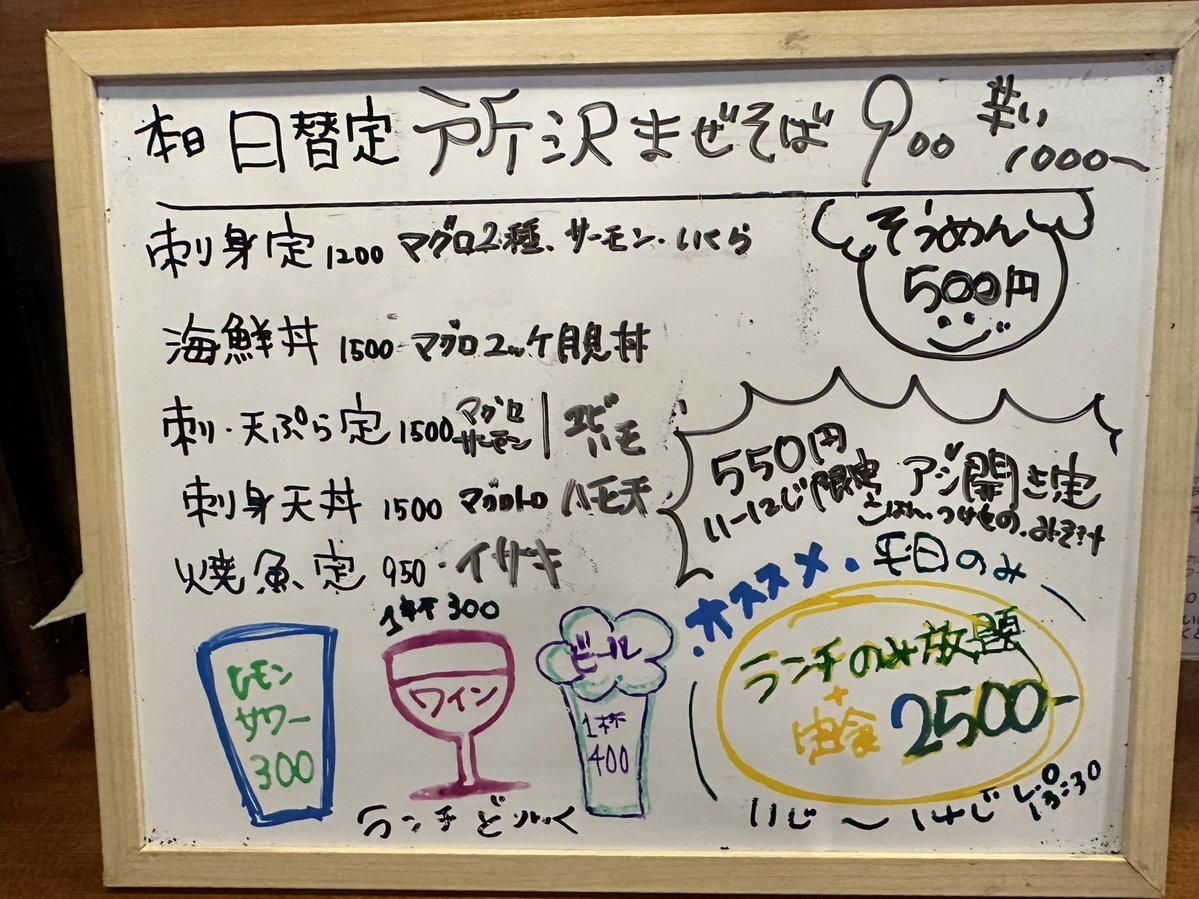 本日 日替定 所沢まぜそば 900 辛い 1000-
そうめん
500円
刺身定 1200 マグロ2種、サーモン・いくら
海鮮丼 1500 マグロユッケ月見丼
刺・天ぷら定 1500 マグロ サーモン | エビ ハモ
刺身天丼 1500 マグロトロ ハモ天
焼魚定 950・イサキ
550円
11-12じ限定
アジ開き定
ごはん、つけもの、みそ汁
オススメ・平日のみ
ランチのみ放題
+
定食 2500-
11じ～14じ L.O 13:30
レモン
サワー
300
1杯300
ワイン
ビール
1杯
400
ランチどりんく